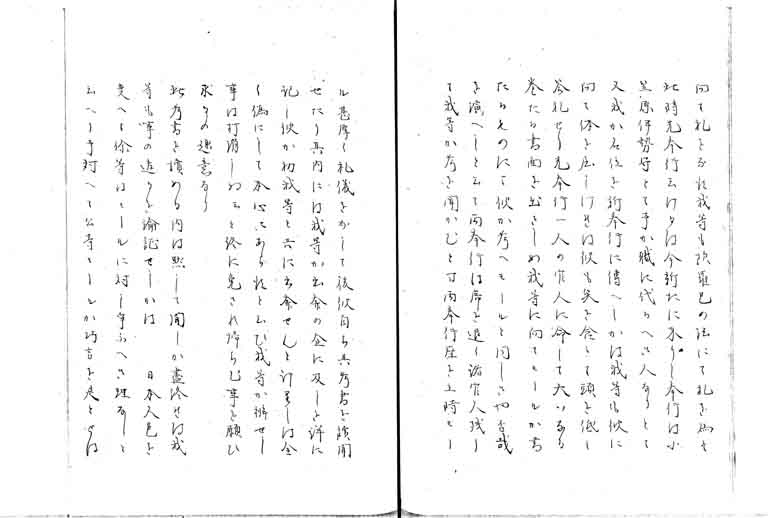 向て礼をなし我等も欧羅巴の法にて礼を為せ
此時先奉行云けるは今新たに来りし奉行は小
笠原伊勢守とて予か職に代るへき人なりとて
又我か名位を新奉行に傳へしかは我等も彼に
向て体を屈しけれは彼も笑を含みて頭を低し
答礼せり先奉行一人の官人に命して大いなる
巻たる書面を出さしめ我等に向てモールか書
たるものにて彼か考へモールと同しきや否哉
を演へしと云て両奉行は席を退く諸官人残り
て我等か考を聞かむとす両奉行座を立時モー
ル甚厚く礼儀をなして後彼自ら其考書を読聞
せたり其内には我等か出奔の企に及しを詳に
記し彼か初我等と共に出奔せんと計りしは全
く偽にして本心にあられと云ひ我等か せし
事は打消し と終に免され帰らむ事を願ひ
求るの趣意なり
此考書を讀める内は黙して聞しか盡 せは我
等も事の せしかは 日本人色を
変へ 等はモールに対し争ふへき理なしと
云へり予対へて公等モールか巧言を是とせは